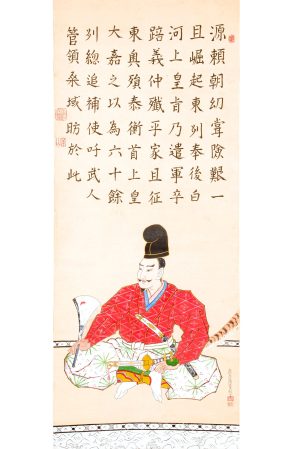 源頼朝幼舉險艱一
且崛起東列奉後白
河上皇旨乃遣軍卒
踣義仲殲平家且征
東奥殞泰衡首上皇
大嘉之以為六十餘
列總追捕使吁武人
管領桑域昉於此